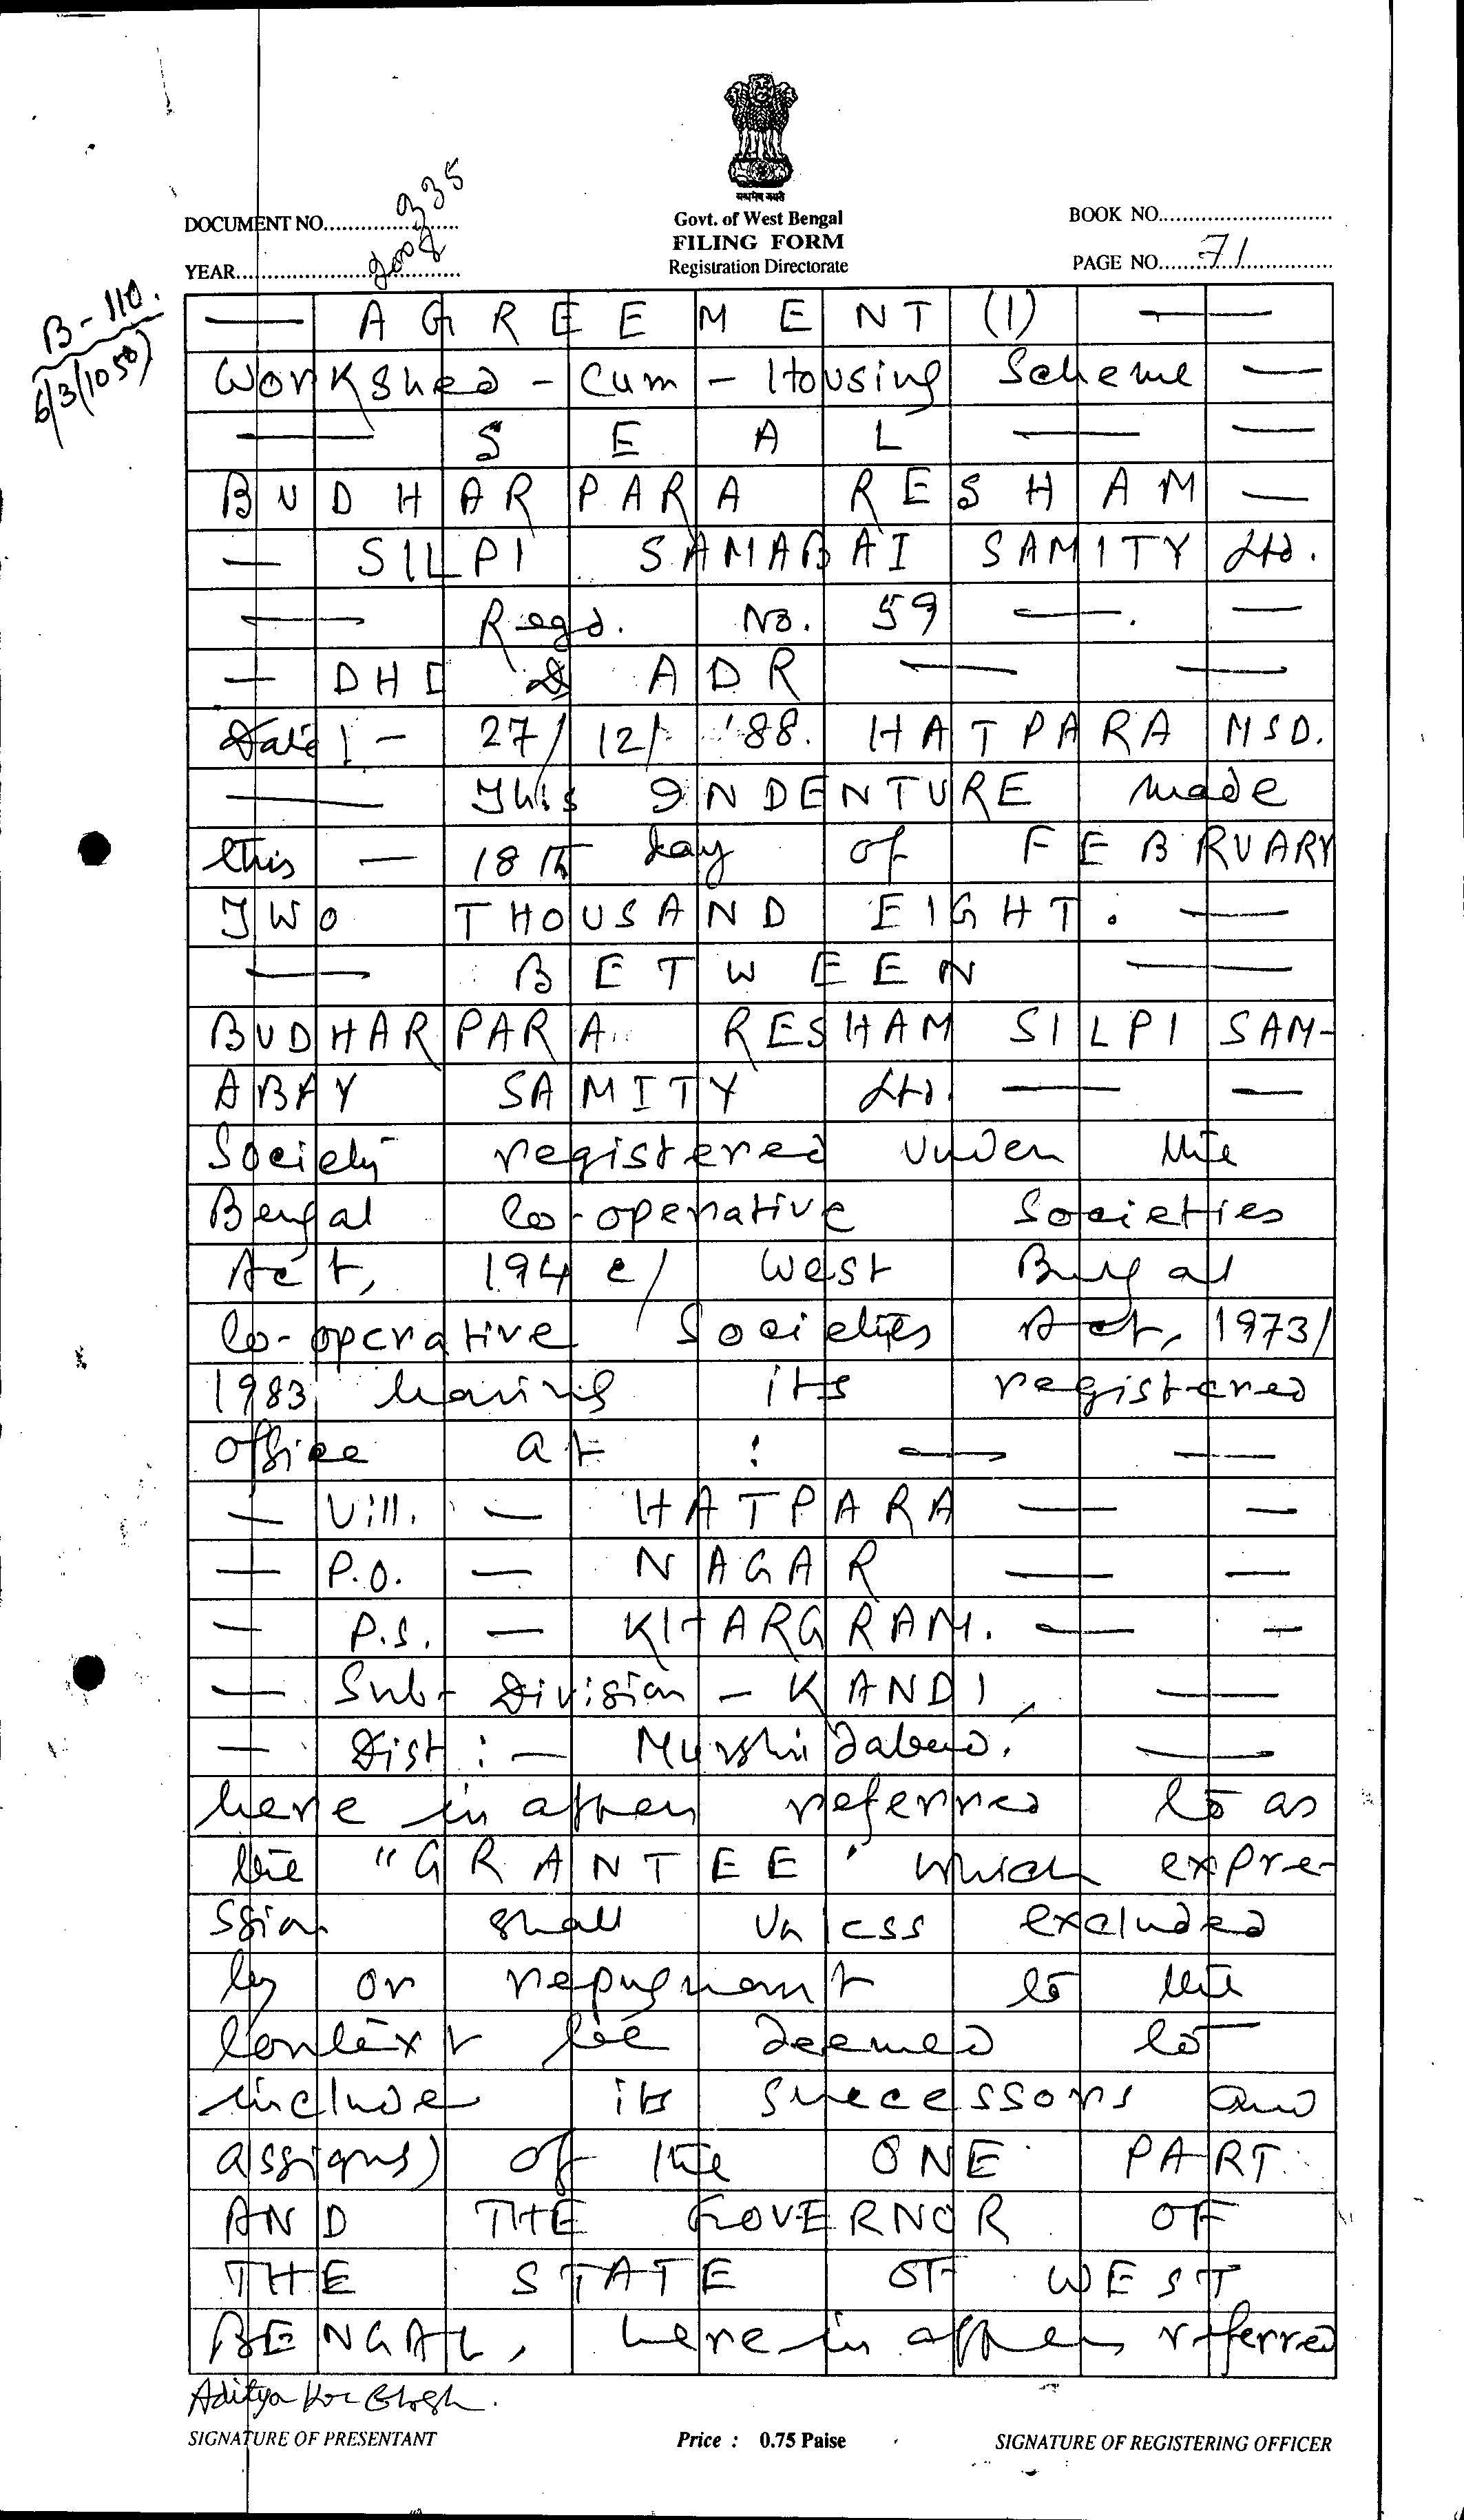 सत्यमेव जयते
Govt. of West Bengal
FILING FORM
Registration Directorate
DOCUMENT NO. 935
YEAR 2008
BOOK NO.
PAGE NO. 71
B-110.
6/3/(1050)
— AGREEMENT (1) —
Workshed - Cum - Housing Scheme —
— SEAL — —
BUDHARPARA RESHAM —
— SILPI SAMABAI SAMITY Ltd.
— Regd. No. 59 —. —
— DHD & ADR — —
Date :- 27/12/'88. HATPARA MSD.
— This INDENTURE made
this — 18th day of FEBRUARY
TWO THOUSAND EIGHT. —
— BETWEEN —
BUDHARPARA RESHAM SILPI SAM-
ABAY SAMITY Ltd. — —
Society registered under the
Bengal Co-operative Societies
Act, 194 / West Bengal
Co-operative Societies Act, 1973/
1983 having its registered
office at : — —
— Vill. — HATPARA — —
— P.O. — NAGAR — —
— P.S. — KHARGRAM. — —
— Sub- Division - KANDI, —
— Dist :- Murshidabad. —
here in after referred to as
the "GRANTEE" which expre-
ssion shall unless excluded
by or repugnant to the
context be deemed to
include its successors and
assigns) of the ONE PART
AND THE GOVERNOR OF
THE STATE OF WEST
BENGAL, here in after referred
Aditya Kr Ghosh.
SIGNATURE OF PRESENTANT
Price : 0.75 Paise
SIGNATURE OF REGISTERING OFFICER